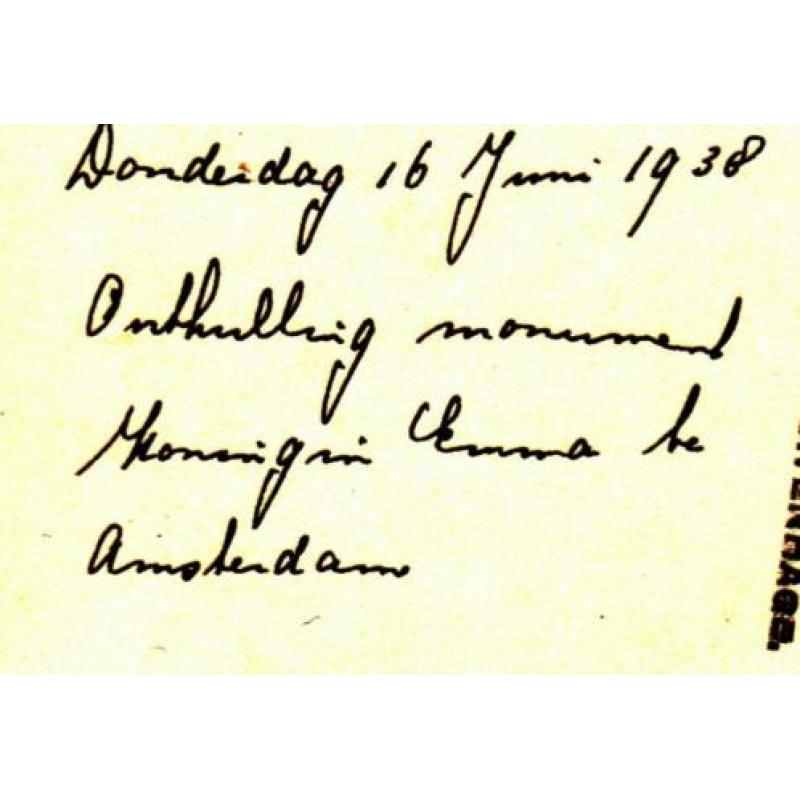 Donderdag 16 Juni 1938
Onthulling monument
Koningin Emma te
Amsterdam